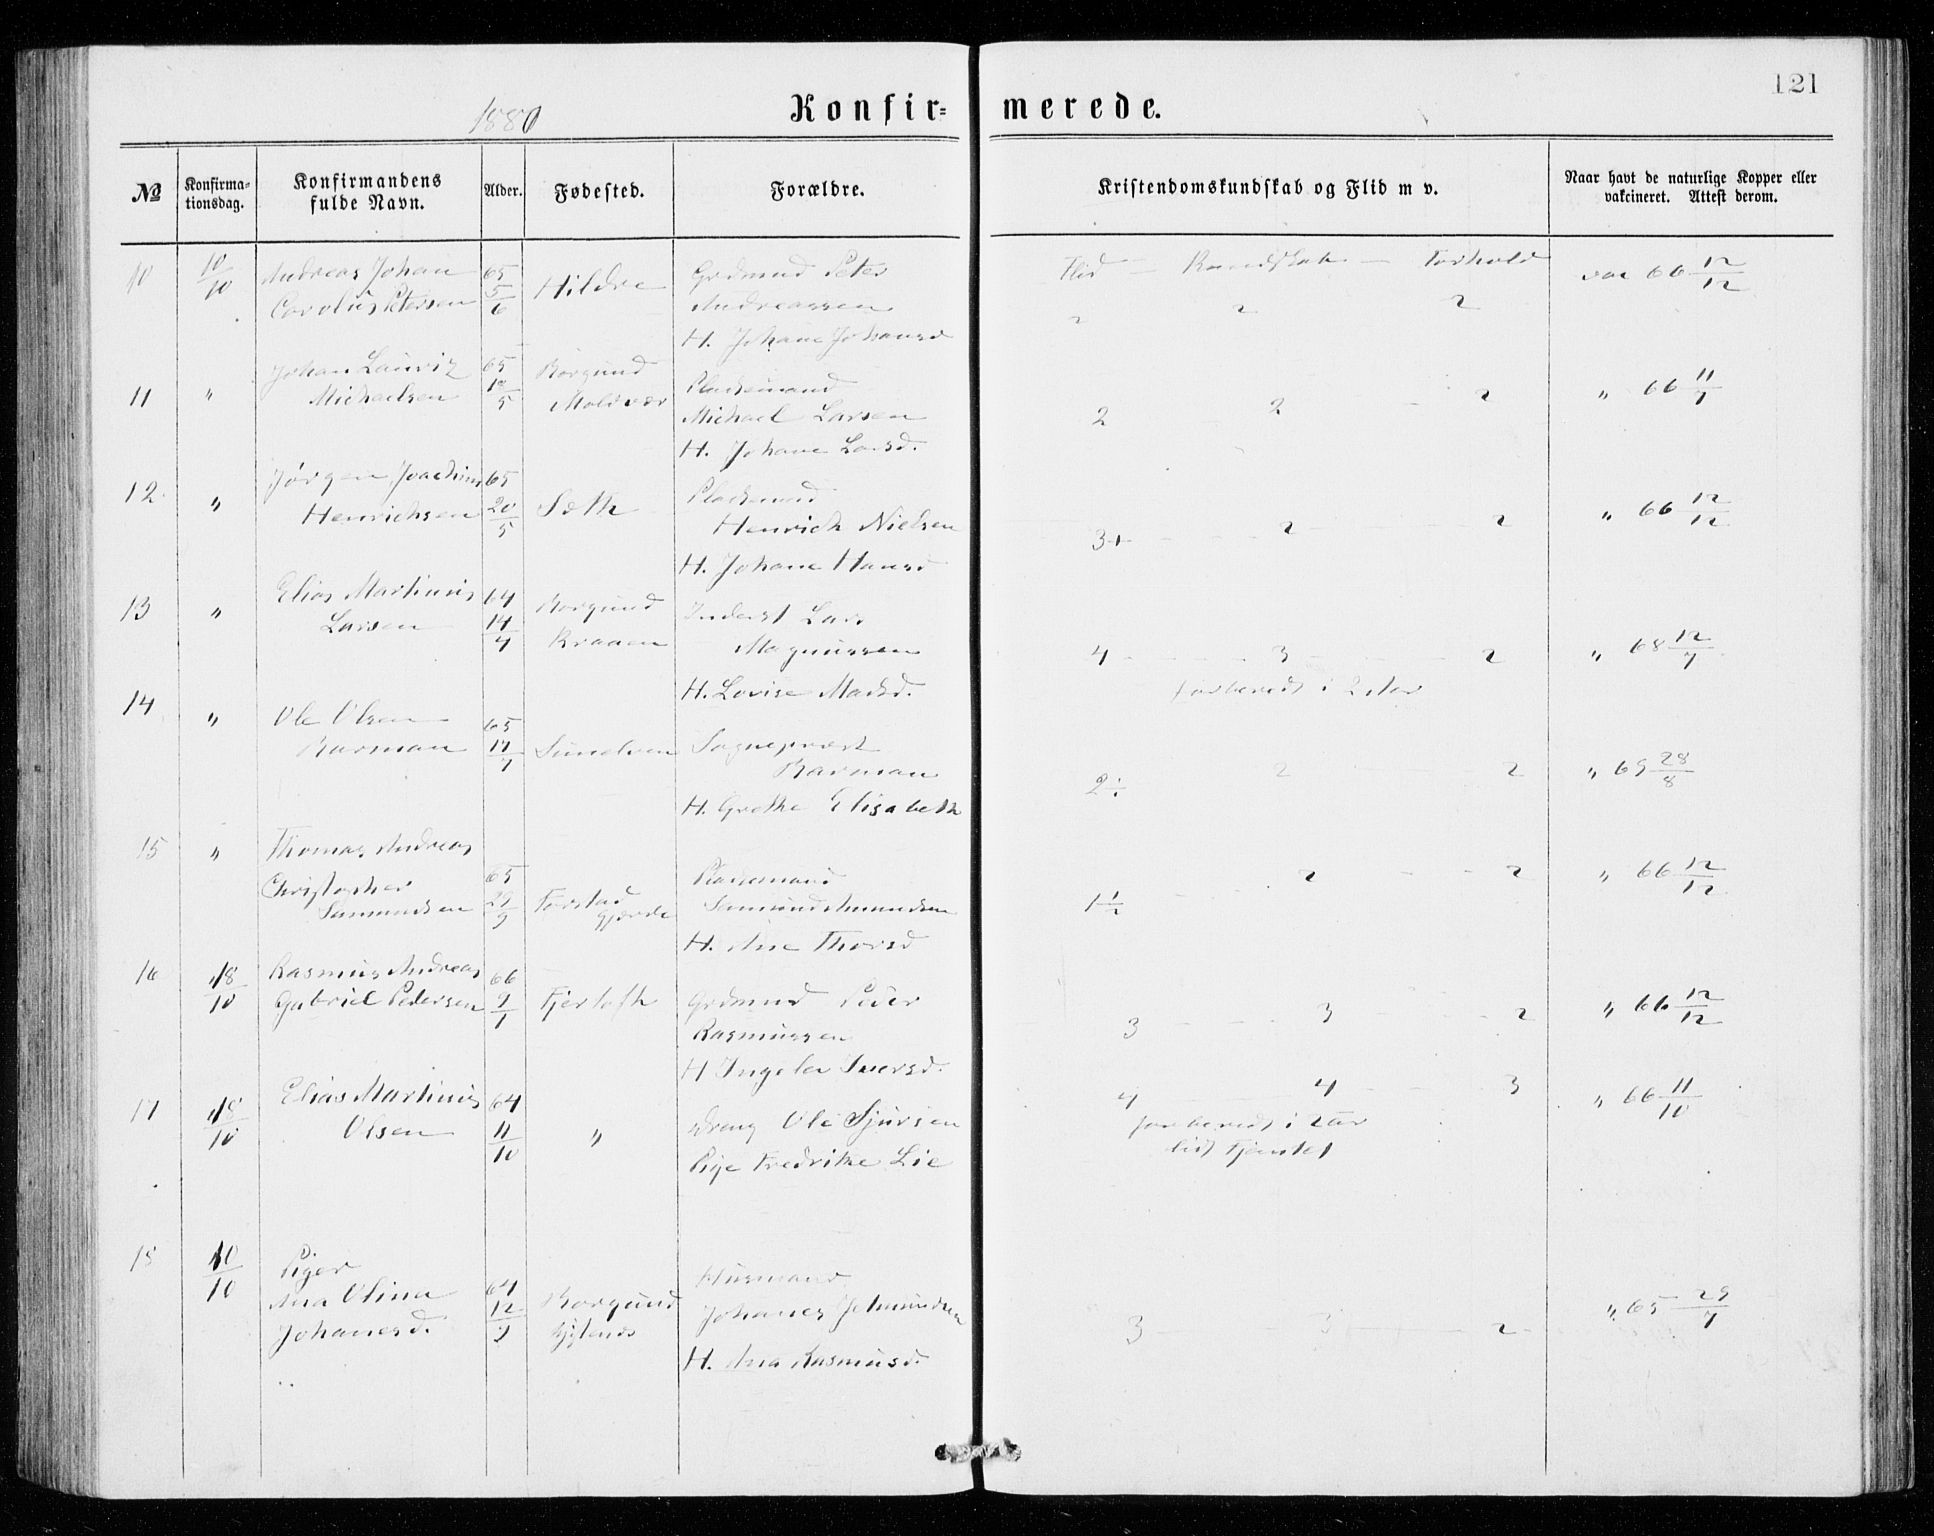 121
1880
Konfir- merede.
№ Konfirma-tionsdag. Konfirmandens fulde Navn. Alder. Fødested. Forældre. Kristendomskundskab og Flid m v. Naar havt de naturlige Kopper eller vakcineret. Attest derom.
Flid — Kundskab — Forhold
10 10/10 Andreas Johan 65 Hildre Grdmand Peter vac 66 12/12
Carolus Petersen 5/6 Andreassen 2 2 2
H. Johane Johansd
11 " Johan Lauriz 65 Borgund Pladsmand " 66 11/7
Michaelsen 18/5 Moldvær Michael Larsen 2 2 2
H. Johane Larsd.
12 " Jørgen Joachim 65 Pladsmand " 66 12/12
Henrichsen 20/5 Sæth Henrich Nielsen 3+ 2 2
H. Johane Hansd
13 " Elias Martinus 64 Borgund Inderst Lars
Larsen 14/4 Kraaen Magnussen 4 3 2 " 68 12/7
H. Lovise Madsd. forbered i 2 Aar
14 " Ole Olsen 65
Barman 17/7 Sunelven Sogneprest " 69 28/8
Barman 2÷ 2 2
H. Grethe Elisabeth
15 " Thomas Andreas
Christopher 65 Pladsmand " 66 12/12
Samundsen 29/9 Farstad Samund Amundsen 1½ 2 2
gjerde H. Ane Thorsd
16 18/10 Rasmus Andreas 66
Gabriel Pedersen 9/1 Fjertoft Grdmand Peder " 66 12/12
Rasmussen 3 3 2
H Ingeler Iversd.
17 18/10 Elias Martinus 64 4 4 3 " 66 11/10
Olsen 11/10 " Dreng Ole Sjursen forbered i 2 aar
Pige Fredrikke Lie
18 10/10 Piger Husmand
Ana Olina 64 Borgund Johanes " 65 29/7
Johanesd. 12/9 3 3 2
H. Ana Rasmusd.